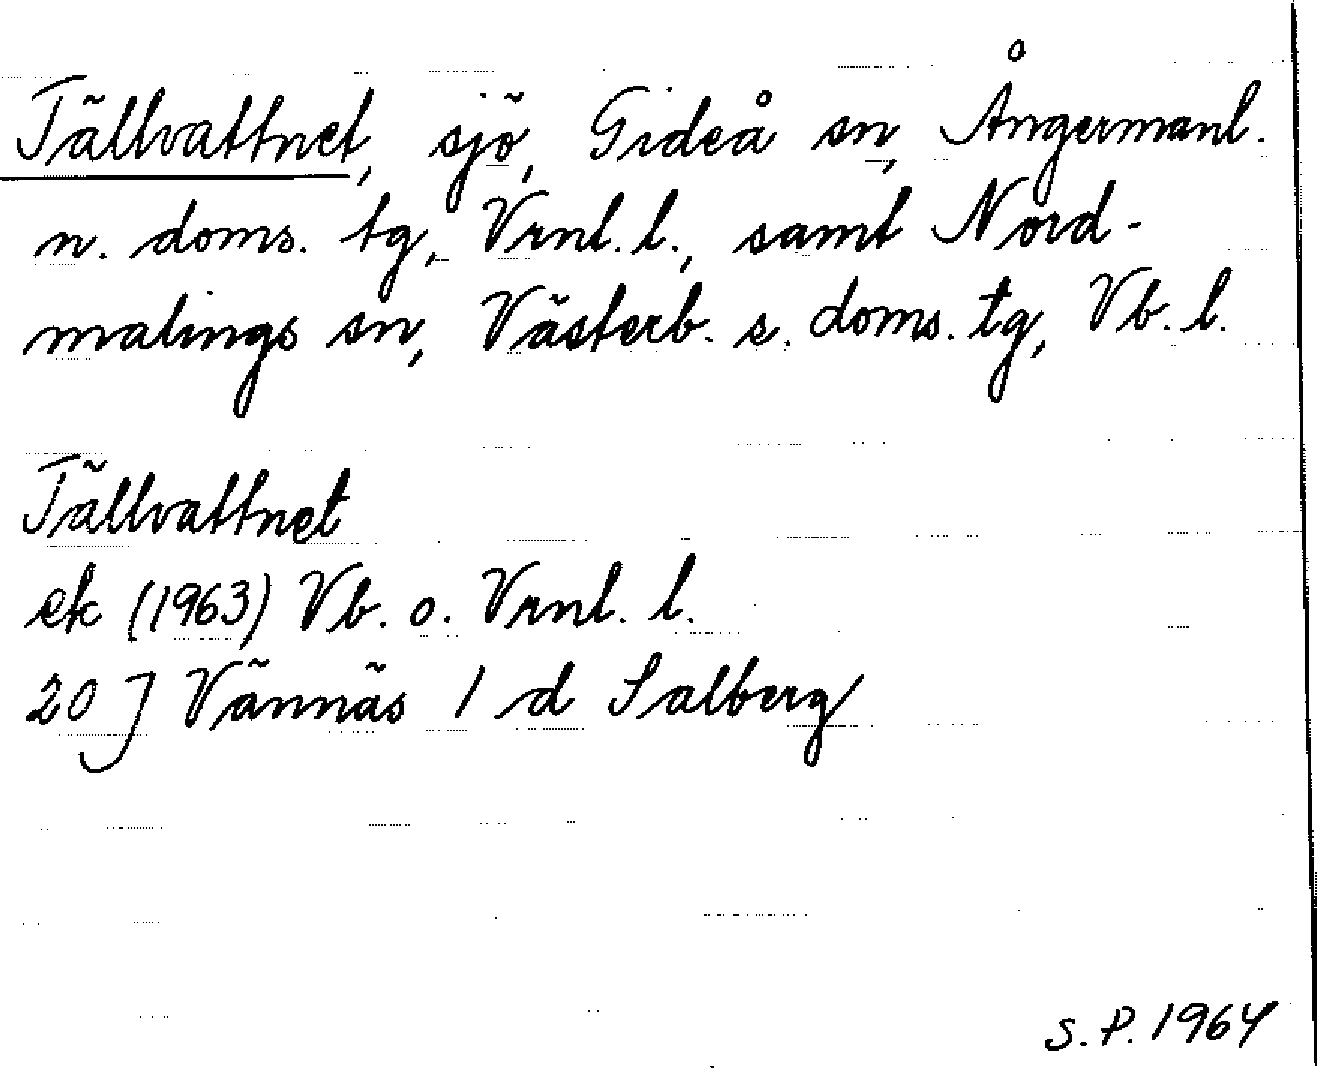 Tällvattnet, sjö, Gideå sn, Ångermanl.
n. doms. tg, Vrnl. l., samt Nord-
malings sn, Västerb. s. doms. tg, Vb. l.
Tällvattnet
ek (1963) Vb. o. Vrnl. l.
20 J Vännäs 1 d Salberg
S.P. 1964